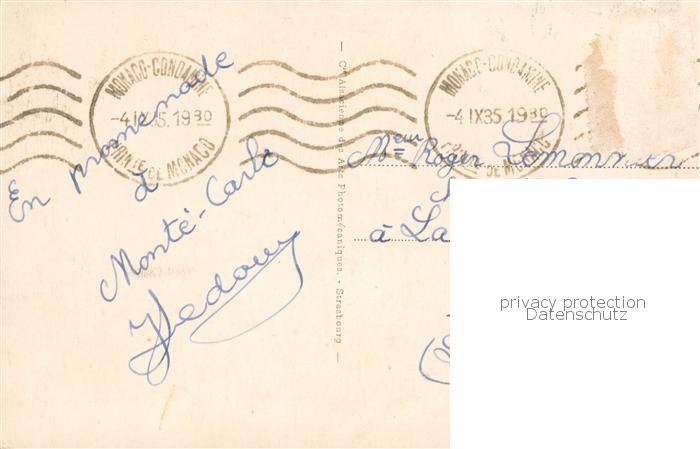 MONACO-CONDAMINE
-4 IX35.1930
PRINTE DE MONACO
MONACO-CONDAMINE
-4 IX35.1930
PRINTE DE MONACO
En promenade
à
Monté-Carlo
Cie Alsacienne des Arts Photomécaniques. - Strasbourg
Mr Roger Lemonnier
à La
privacy protection
Datenschutz